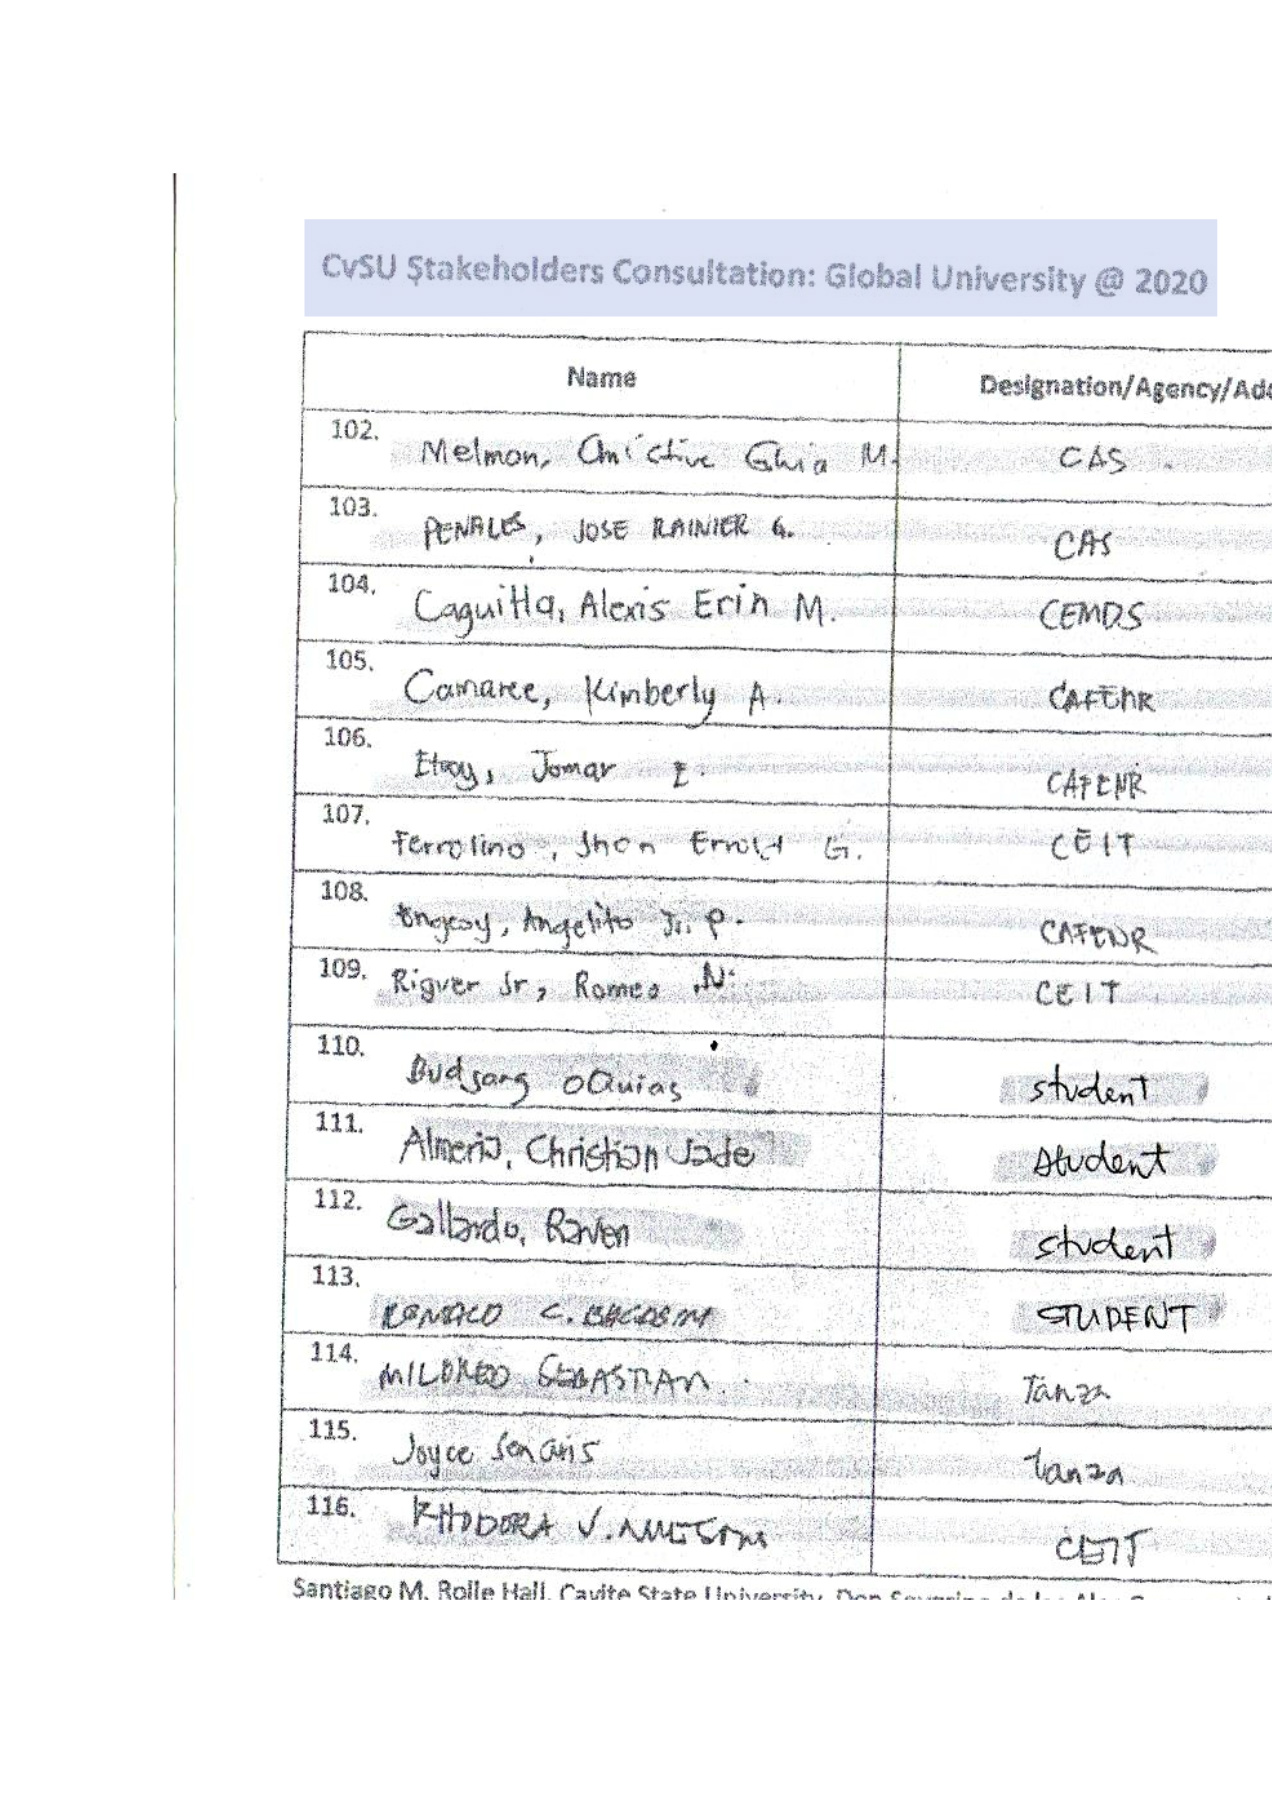 CvSU Stakeholders Consultation: Global University @ 2020
Name Designation/Agency/Add
102. Melmon, Christine Ghia M. CAS
103. PENALES, JOSE RAINIER G. CAS
104. Caguitla, Alexis Erin M. CEMDS
105. Camaree, Kimberly A. CAFENR
106. Jomar CAFENR
107. Ferrolino, Jhon Errold G. CEIT
108. Angelito Jr. P. CAFENR
109. Rigver Jr, Romeo N. CEIT
110. student
111. Almeria, Christian Jade student
112. Gallardo, Raven student
113. C. STUDENT
114. MILDRED SEBASTIAN Tanza
115. Joyce Tanza
116. RHODORA V. CEIT
Santiago M. Rolle Hall, Cavite State University, Don Severino de las Alas